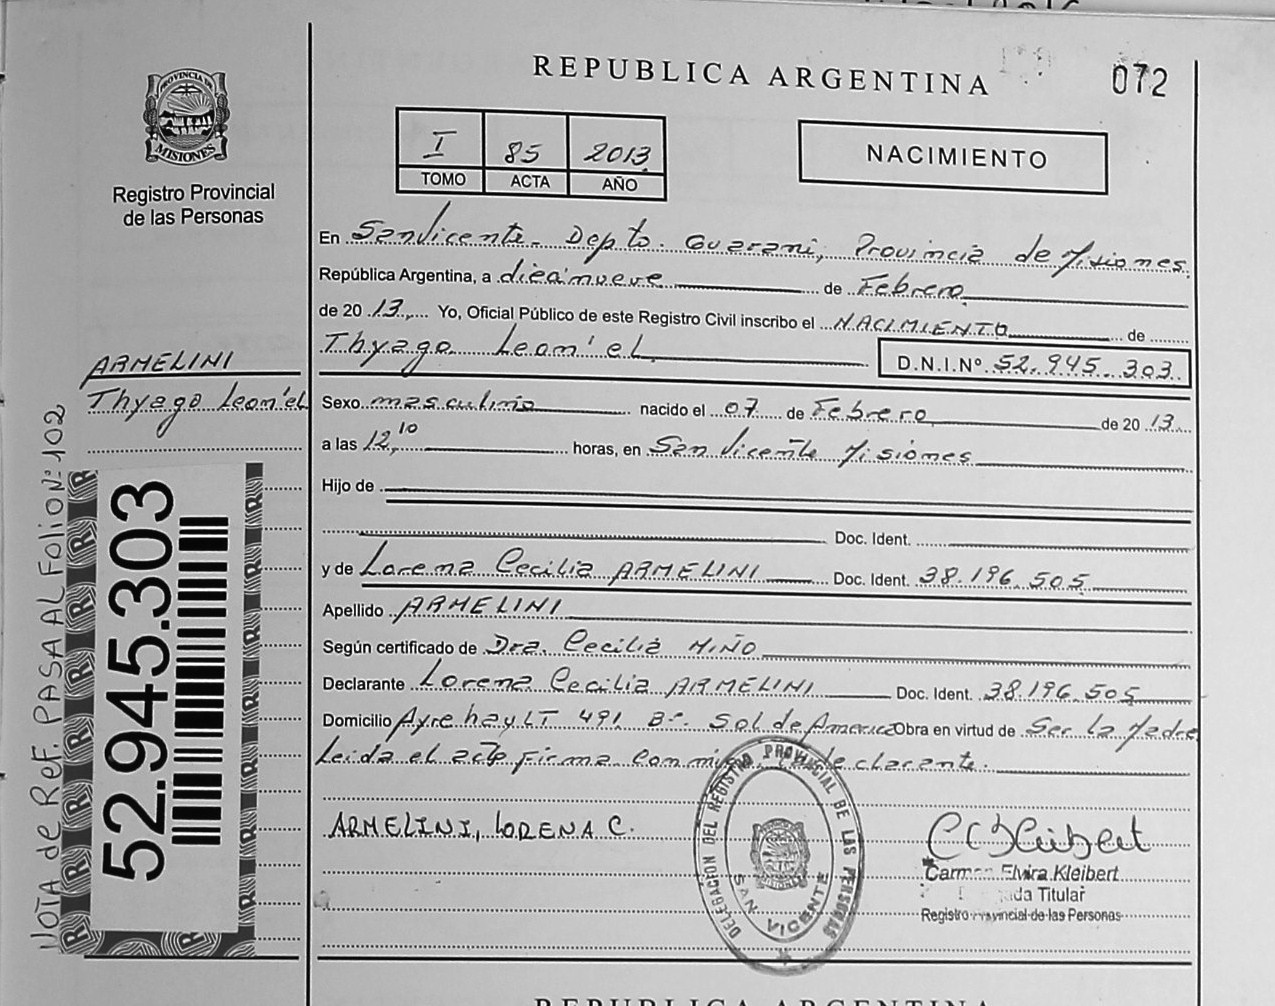 REPUBLICA ARGENTINA
072
PROVINCIA DE
MISIONES
Registro Provincial
de las Personas
I 85 2013
TOMO ACTA AÑO
NACIMIENTO
En San Vicente - Depto. Guarani, Provincia de Misiones
República Argentina, a diecinueve de Febrero
de 20 13, Yo, Oficial Público de este Registro Civil inscribo el NACIMIENTO de
Thyago Leon'el D.N.I.Nº 52.945.303
ARMELINI
Thyago Leon'el
Sexo masculino nacido el 07 de Febrero de 20 13
a las 12,10 horas, en San Vicente Misiones
Hijo de
Doc. Ident.
y de Lorena Cecilia ARMELINI Doc. Ident. 38.196.505
Apellido ARMELINI
Según certificado de Dra. Cecilia MIÑO
Declarante Lorena Cecilia ARMELINI Doc. Ident. 38.196.505
Domicilio LT 491 Bº Sol de America Obra en virtud de Ser la Madre
Leida el acta firma conmigo, la declarante.
ARMELINI, LORENA C.
DELEGACION DEL REGISTRO PROVINCIAL DE LAS PERSONAS
SAN VICENTE
Carmen Elvira Kleibert
Titular
Registro Provincial de las Personas
52.945.303
NOTA de Ref. PASA AL Folio Nº 102
REPUBLICA ARGENTINA